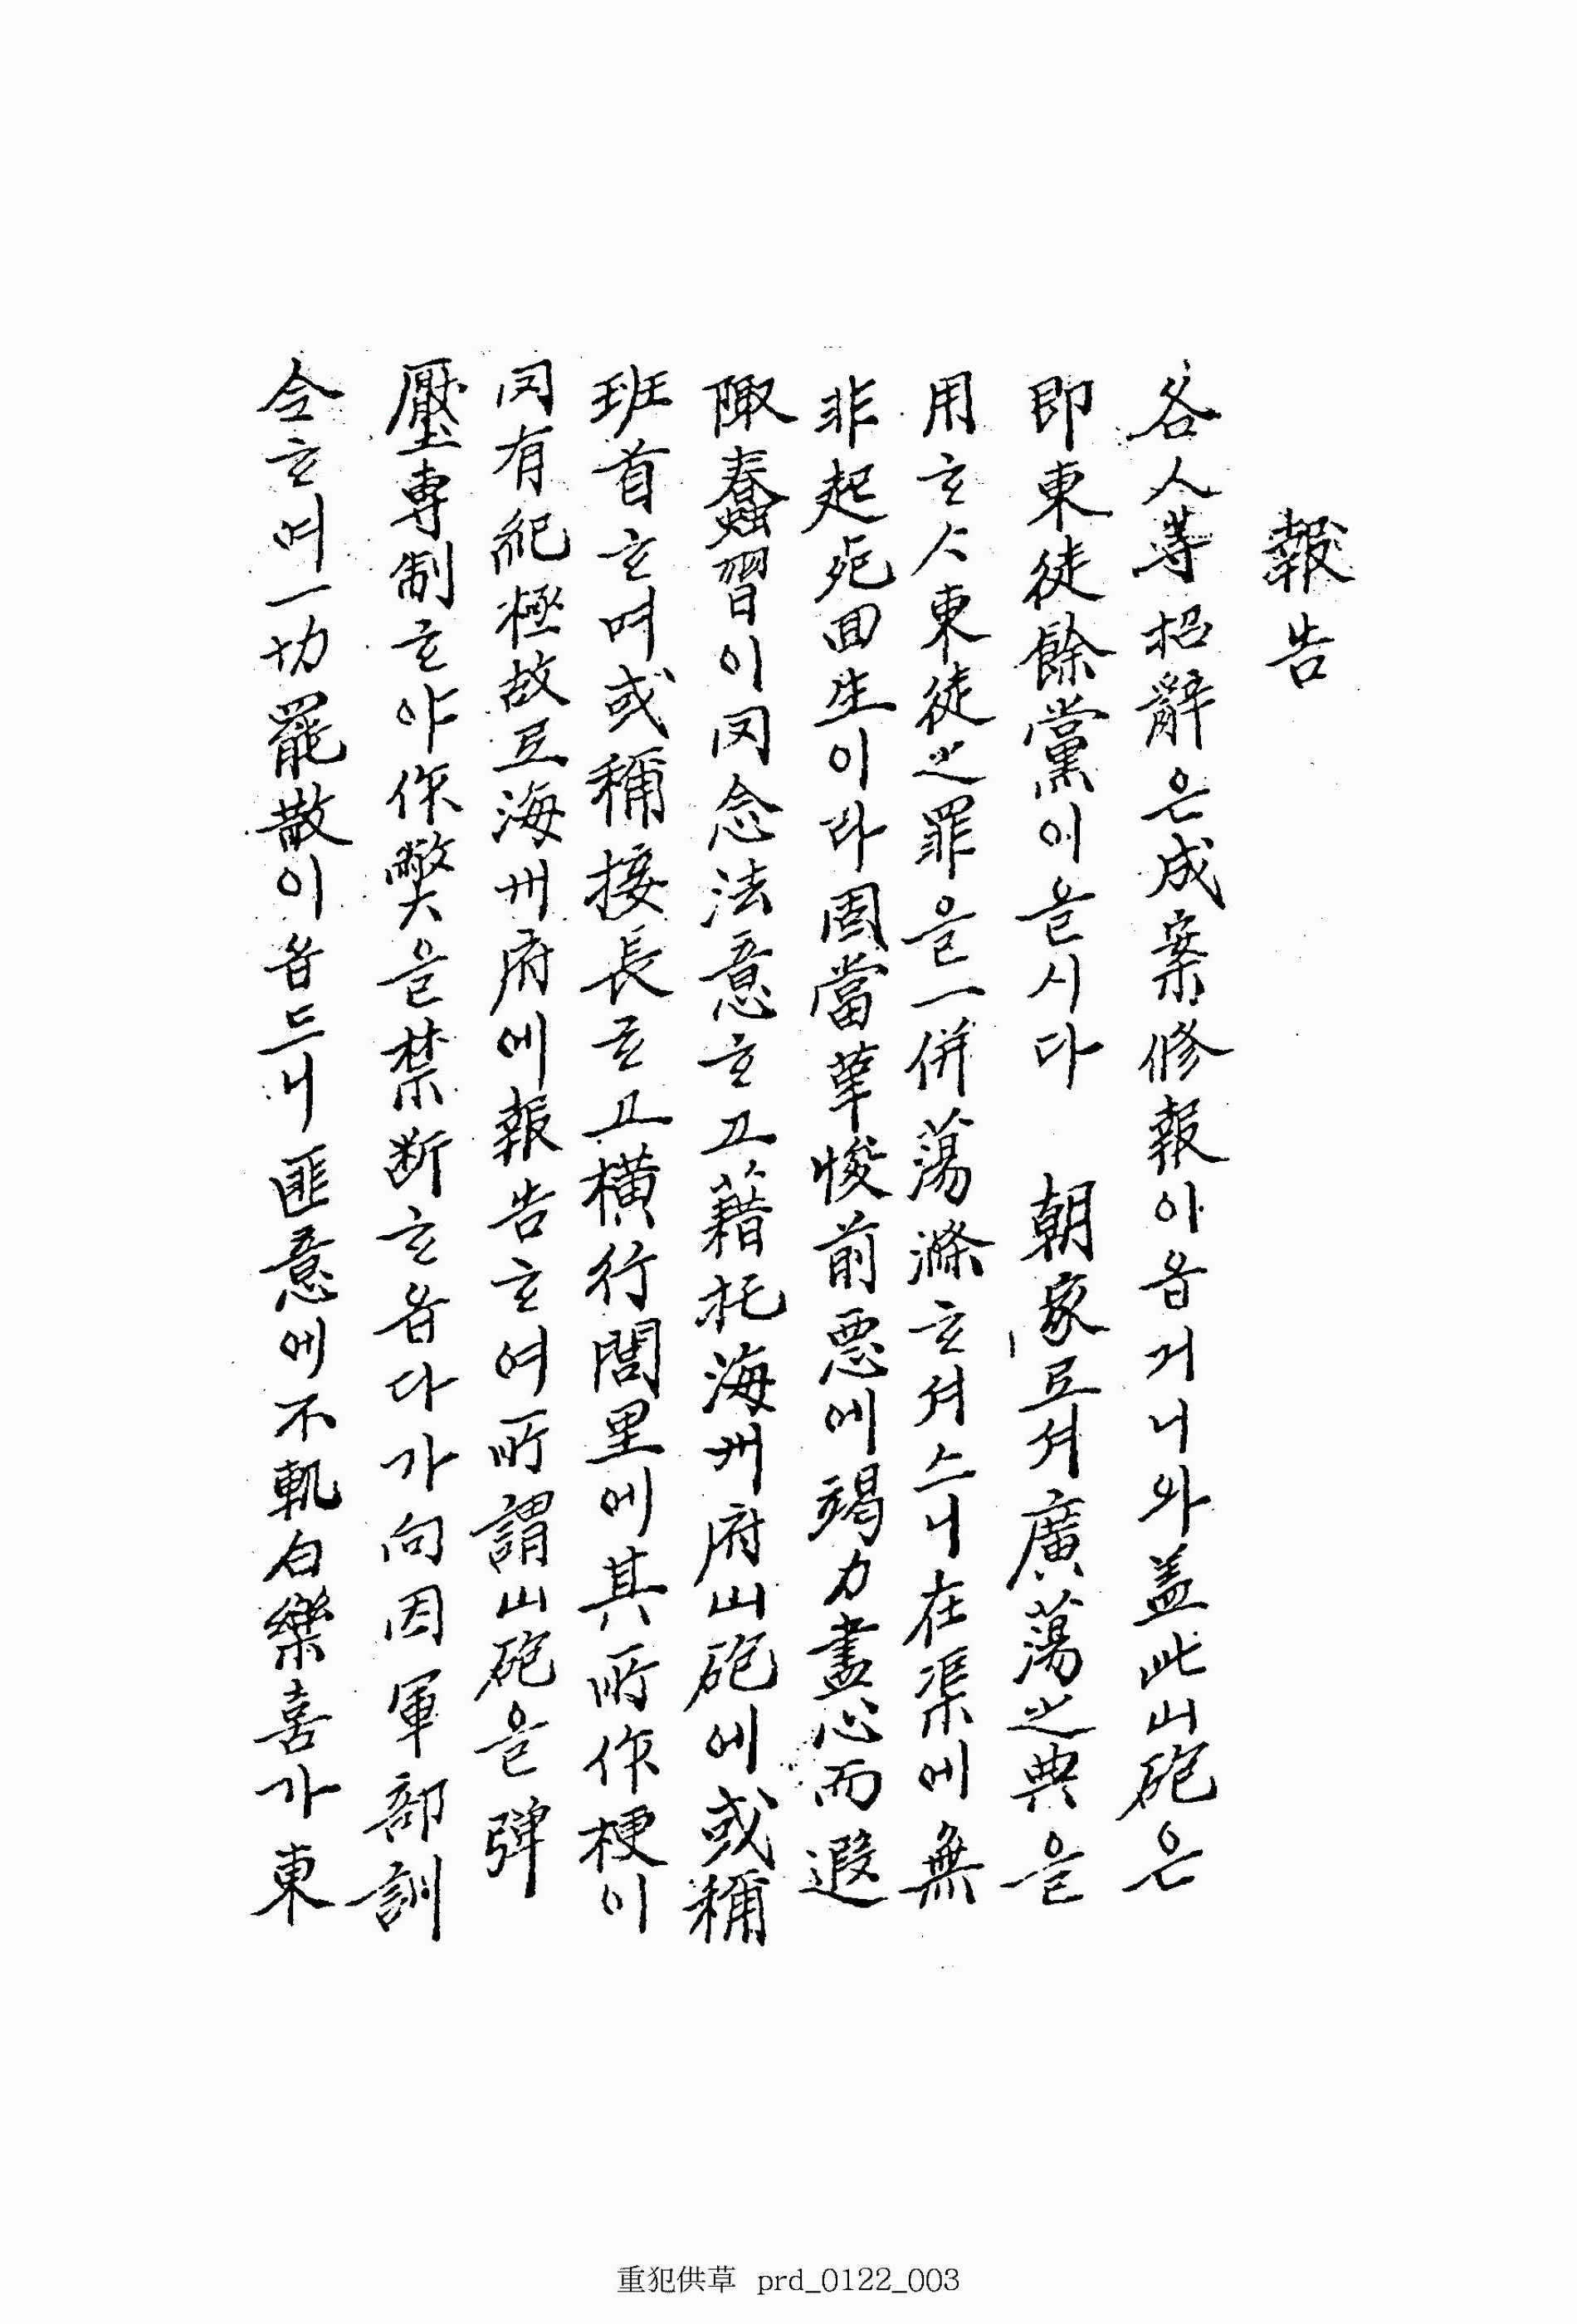 報告
各人等招辭은成案修報아옵거니와盖此山砲은
即東徒餘黨이을시다 朝家로셔廣蕩之典을
用ᄒᆞᄉᆞ東徒之罪을一併蕩滌ᄒᆞ셔스니在渠에無
非起死回生이라固當革悛前惡에竭力盡心而遐
陬蠢習이罔念法意ᄒᆞ고藉托海州府山砲에或稱
班首ᄒᆞ며或稱接長ᄒᆞ고橫行閭里에其所作梗이
罔有紀極故로海州府에報告ᄒᆞ여所謂山砲을彈
壓專制ᄒᆞ야作弊을禁断ᄒᆞ옵다가向因軍部訓
令ᄒᆞ여一切罷散이옵드니匪意에不軌白樂喜가東
重犯供草 prd_0122_003